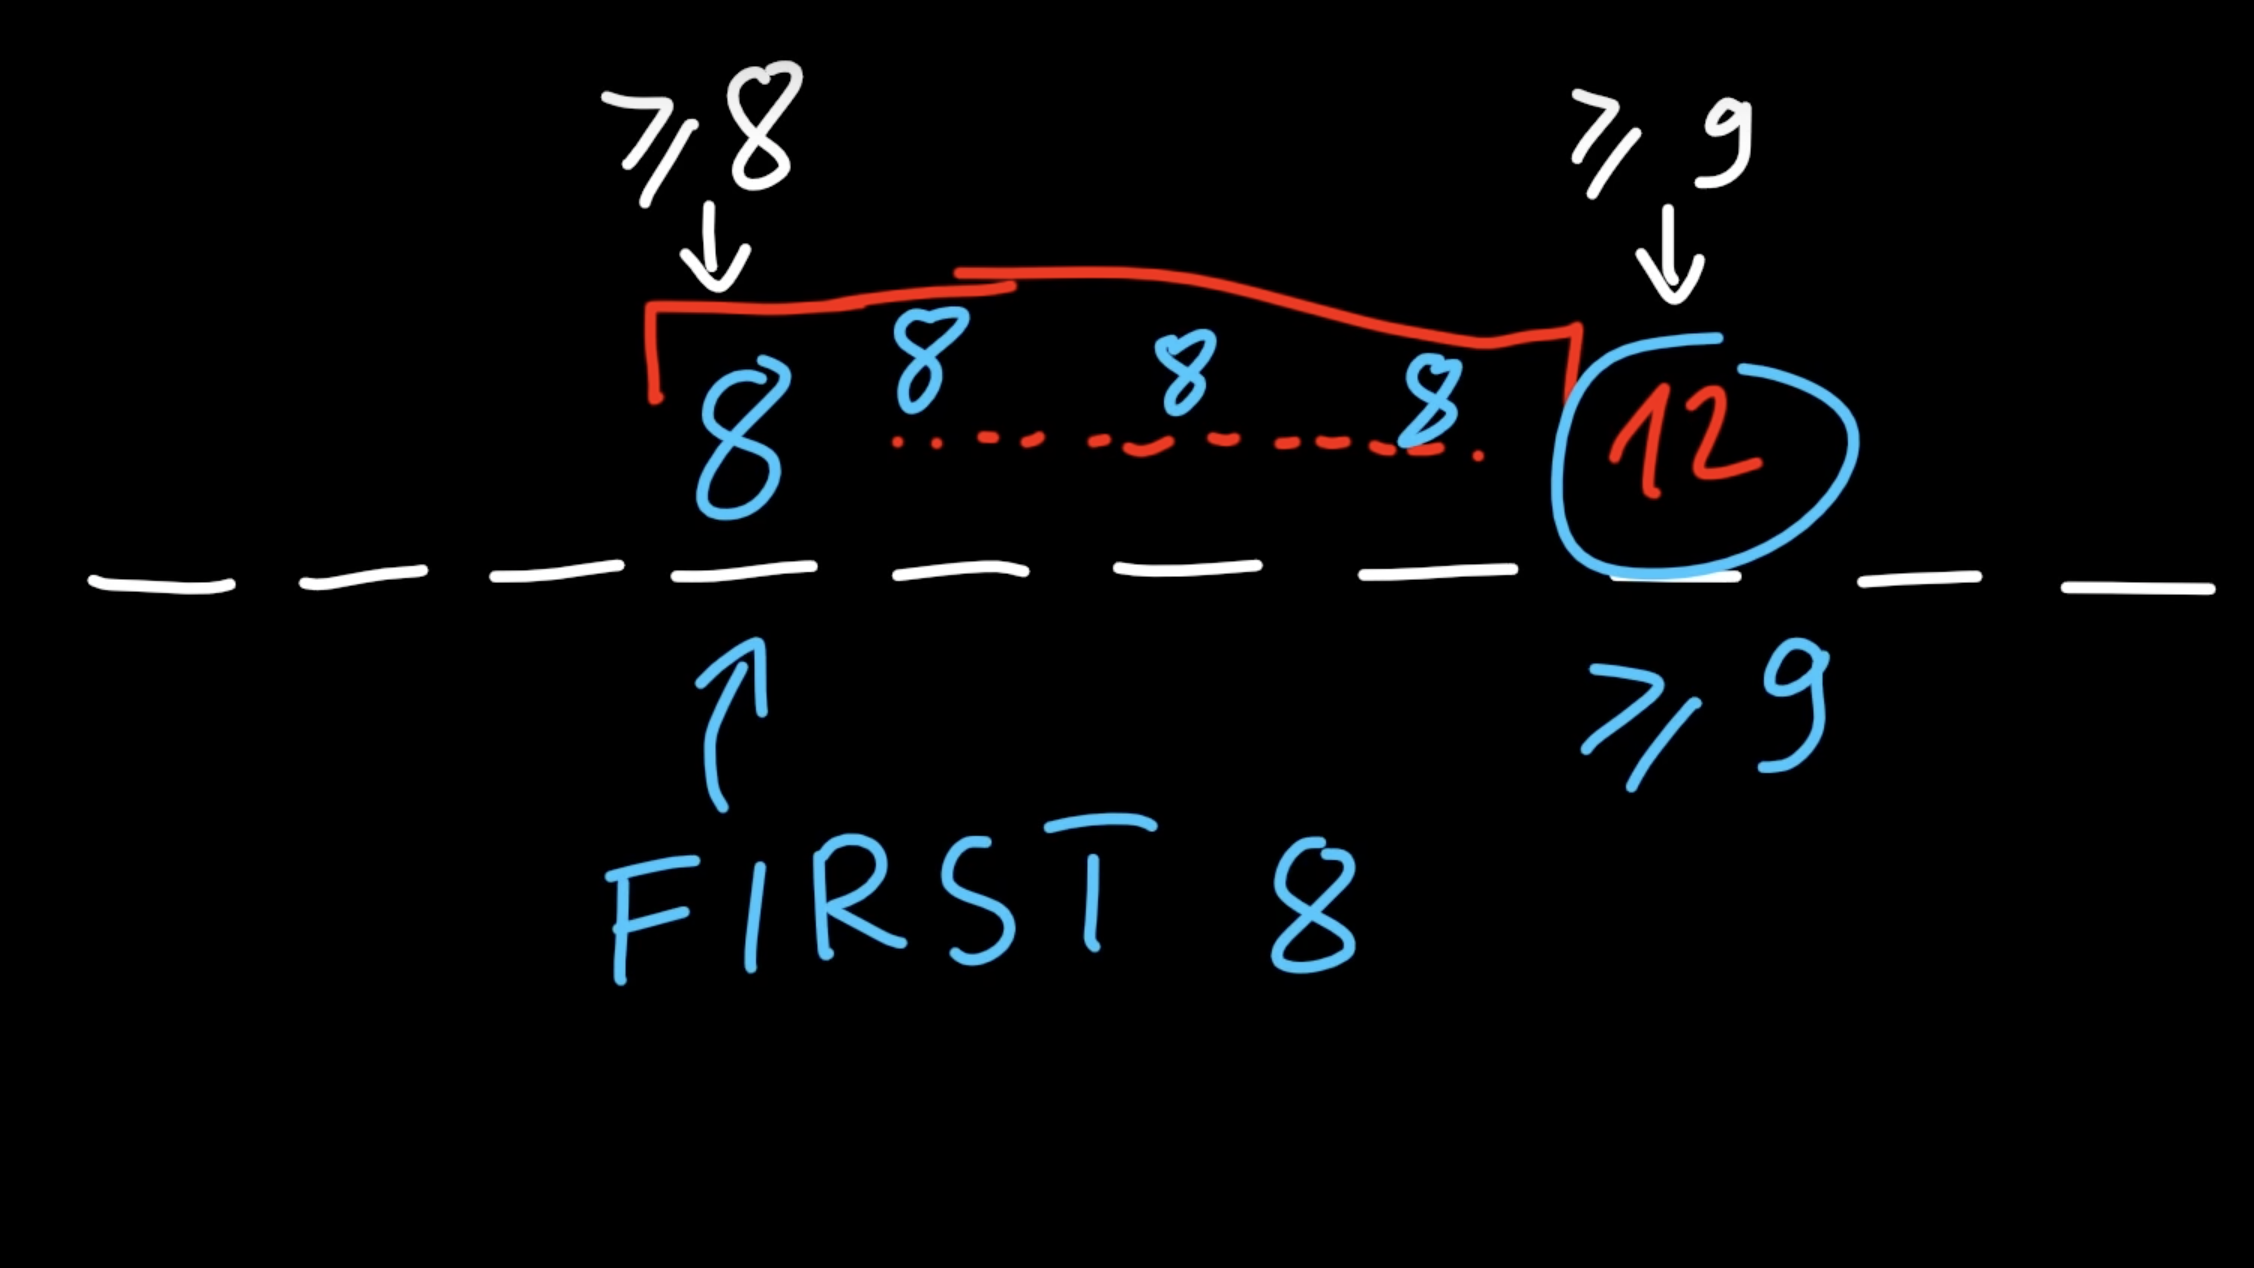 ≥8 ≥9
8 8 8 8 12
≥9
FIRST 8